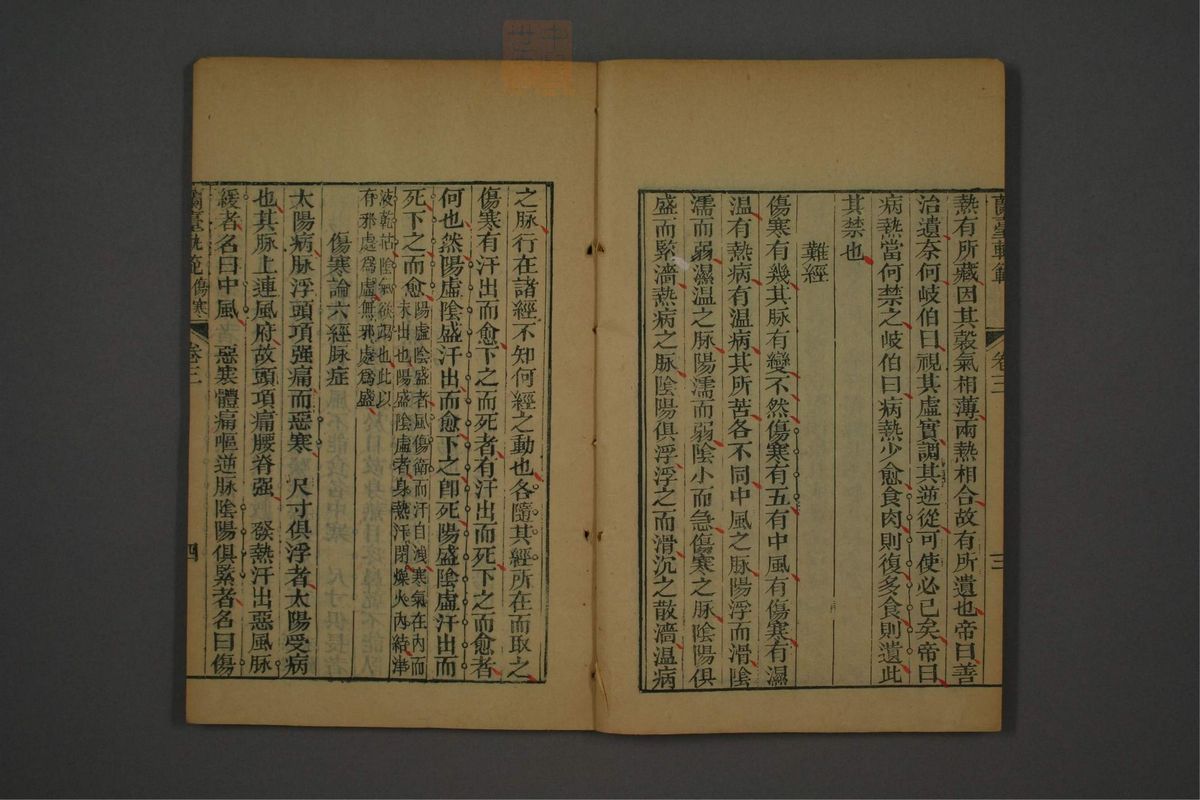 蘭臺軌範 卷三 三
熱有所藏因其穀氣相薄兩熱相合故有所遺也帝曰善
治遺奈何岐伯曰視其虛實調其逆從可使必已矣帝曰
病熱當何禁之岐伯曰病熱少愈食肉則復多食則遺此
其禁也
難經
傷寒有幾其脉有變不然傷寒有五有中風有傷寒有濕
温有熱病有温病其所苦各不同中風之脉陽浮而滑陰
濡而弱濕温之脉陽濡而弱陰小而急傷寒之脉陰陽俱
盛而緊濇熱病之脉陰陽俱浮浮之而滑沉之散濇温病
之脉行在諸經不知何經之動也各隨其經所在而取之
傷寒有汗出而愈下之而死者有汗出而死下之而愈者
何也然陽虛陰盛汗出而愈下之卽死陽盛陰虛汗出而
死下之而愈陽虛陰盛者風傷衛而汗自洩寒氣在內而
未出也陽盛陰虛者身熱汗閉燥火內結津
液乾枯陰氣從陽也此以
有邪處爲虛無邪處爲盛
傷寒論六經脉症
太陽病脉浮頭項强痛而惡寒 尺寸俱浮者太陽受病
也其脉上連風府故頭項痛腰脊强 發熱汗出惡風脉
緩者名曰中風 惡寒體痛嘔逆脉陰陽俱緊者名曰傷
蘭臺軌範 傷寒 卷三 四